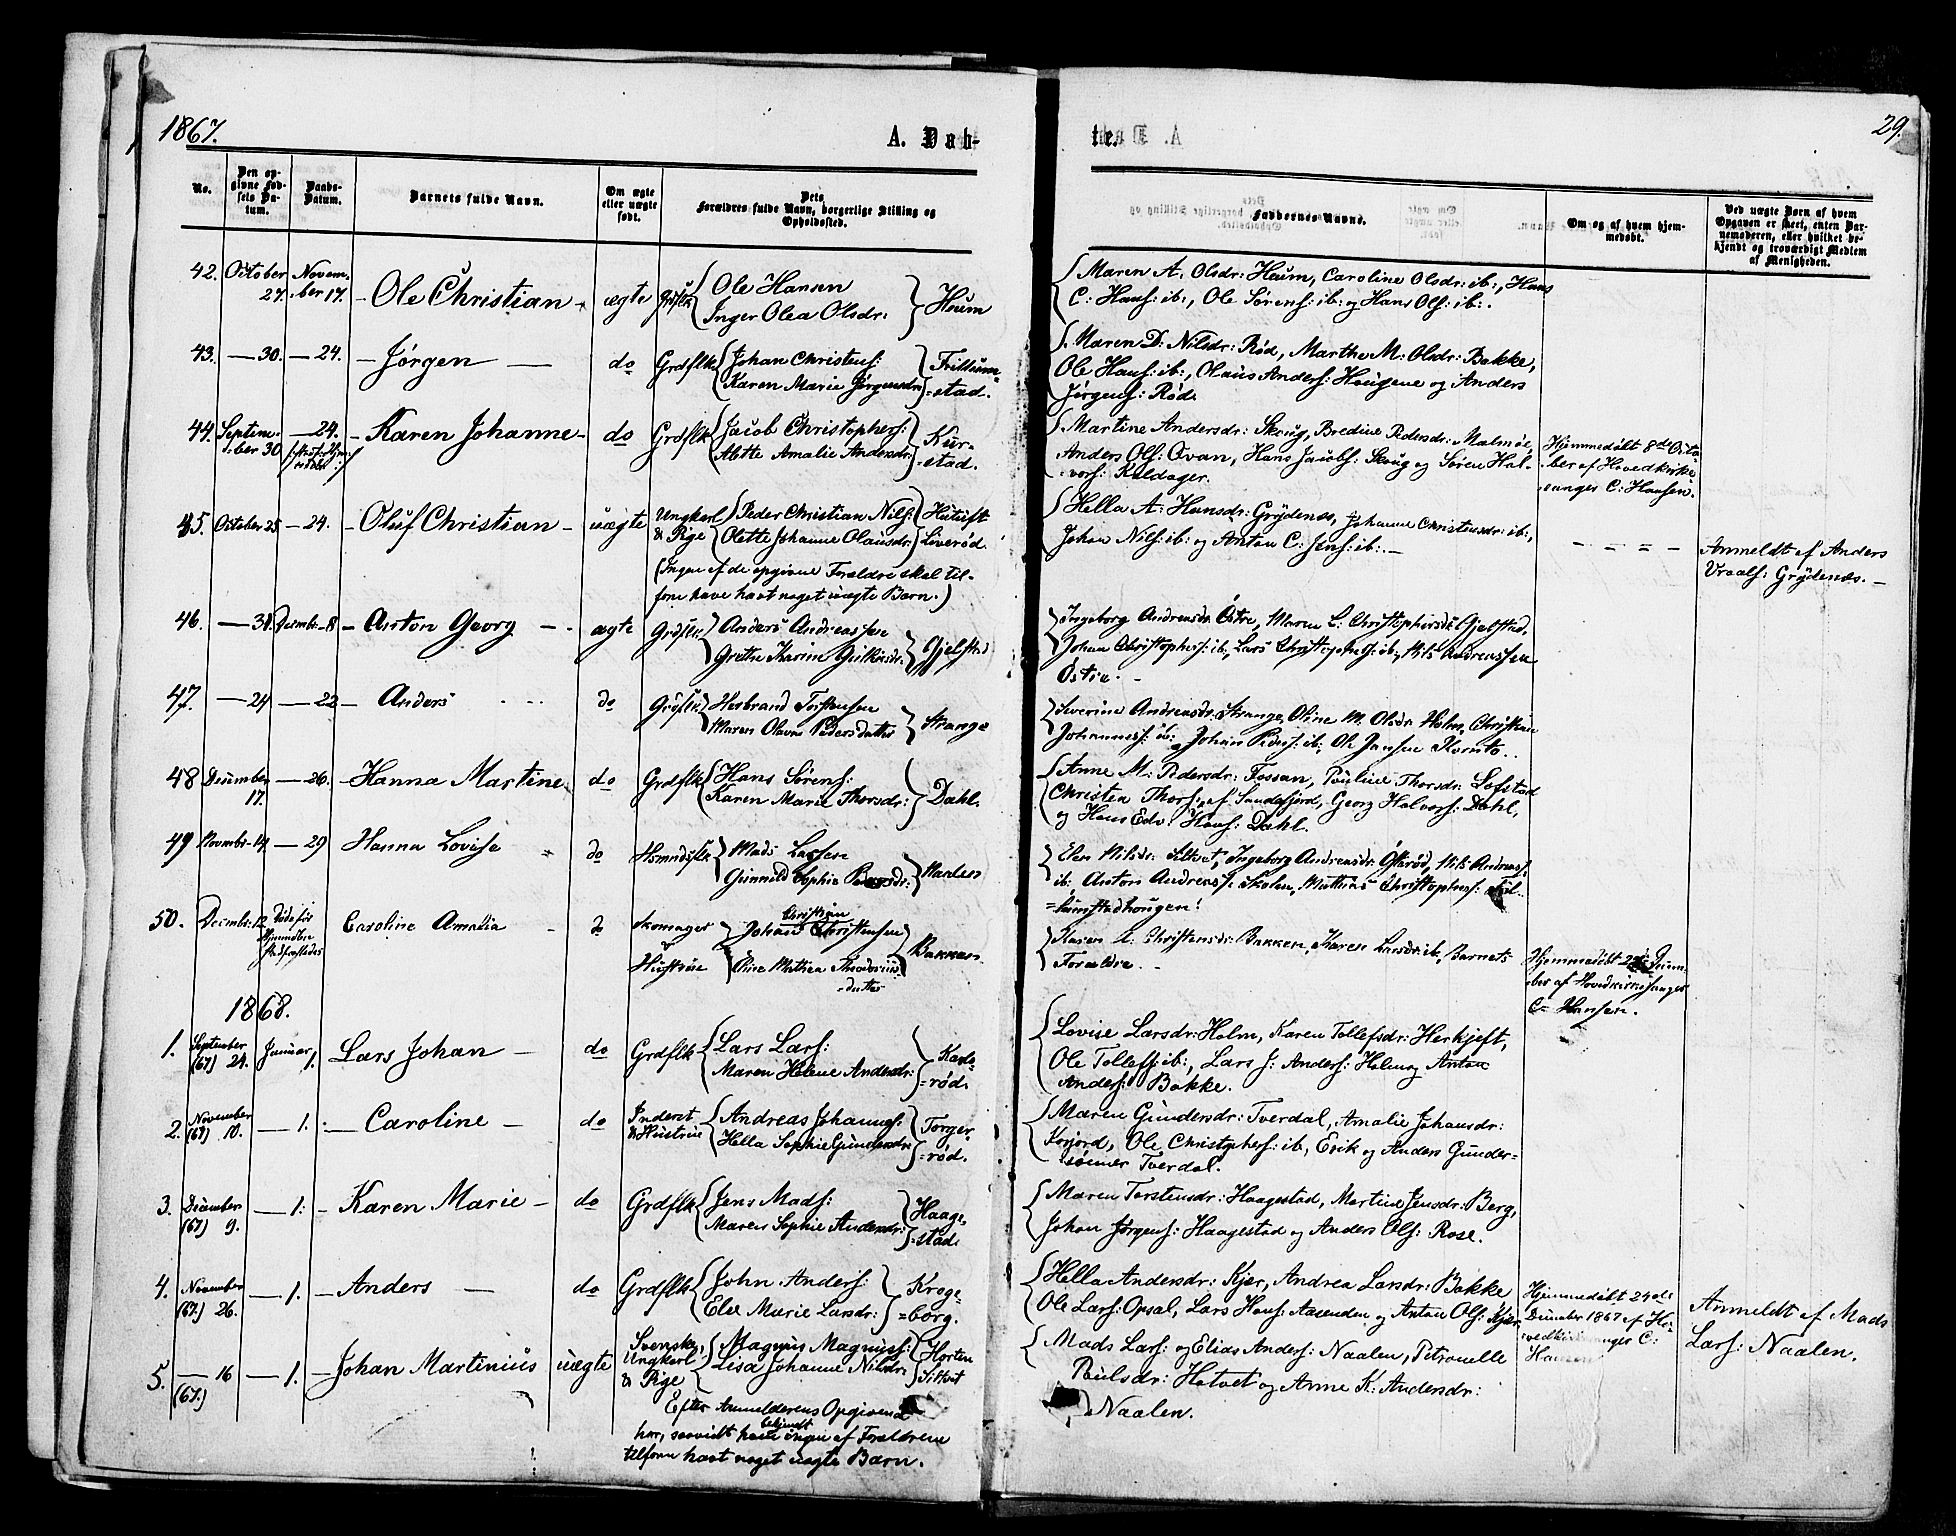 1867.
A. Døb-
te.
29.
No.
Den opgivne Fødsels Datum.
Daabs-Datum.
Barnets fulde Navn.
Om ægte eller uægte født.
Dets Forældres fulde Navn, borgerlige Stilling og Opholdssted.
Faddernes Navne.
Om og af hvem hjemmedøbt.
Ved uægte Børn af hvem Opgaven er skeet, enten Barnemoderen, eller hvilket bekjendt og troværdigt Medlem af Menigheden.
42. October 27. November 17. - Ole Christian - ægte Grdflk
Ole Hansen
Inger Olea Olsdr:
Houm
Maren A. Olsdr: Houm, Caroline Olsdr: ib:, Hans
C: Hans: ib:, Ole Sørens: ib: og Hans Ols: ib:.
43. — 30. — 24. — Jørgen — do Grdflk
Johan Christens:
Karen Marie Jørgensdr:
=stad.
Maren D: Nilsdr: Rød, Marthe M: Olsdr: Bakke,
Ole Hans: ib:, Olaus Anders: Hougene og Anders
Jørgens: Rød.
44. September 30 — 24. - Karen Johanne - do Grdflk
Jacob Christophers:
Alette Amalie Andersdr:
=stad.
Martine Andersdr: Skoug, Bredine Pedersdr: Malmøe,
Anders Ols: Qvan, Hans Jacobs: Skoug og Søren Hal-
=vors: Raldager.
Hjemmedøbt 8de Octo-
ber af Hovedkirke-
sanger C: Hansen.
45. October 25 — 24. - Oluf Christian - uægte Ungkarl & Pige
Peder Christian Nils:
Olette Johanne Olausdr:
Liverød.
(Ingen af de opgivne Forældre skal til-
forn have havt noget uægte Barn.)
Hella A: Hansdr: Grydenæs, Johanne Christensdr: ib:,
Johan Nils: ib: og Anton C: Jens: ib: —
Anmeldt af Anders
Vraals: Grydenæs. —
46. — 31. Decembr. 8 — Anton Georg — ægte Grdflk
Anders Andreassen
Gjelstad
Ingeborg Andreasdr. Østre, Maren L: Christophersdr. Gjelstad,
Johan Christophers: ib., Lars Christophers: ib., Nils Andreassen
Østre. —
47. — 24 — 22 — Anders do Grdflk
Herbrand Torstensen
Maren Olava Pedersdatter
Strange
Severine Andreasdr. Strange, Oline M. Olsdr. Holm, Christian
Johannes: ib., Johan Peders: ib:, Ole Jansen
48 December 17. — 26. — Hanna Martine do Grdflk
Hans Sørens:
Karen Marie Thorsdr:
Dahl.
Anne M: Pedersdr: Fossan, Pauline Thorsdr: Lofstad
Christen Thors: af Sandefjord, Georg Halvors: Dahl,
og Hans Edv: Hans: Dahl.
49 Novembr. 14. — 29 Hanna Lovise do Hsmndsflk
Mads Larsen
Gunnild Sophie
Naalen
Elen Nilsdr. Siltvet, Ingeborg Andreasdr. Østrød, Nils Andreas:
ib. Anton Andreass: Skolen, Mathias Christophers:
50. Decembr. 12 Caroline Amalia do Skomager Hustrue
Johan Christian Christensen
Oline Mathea
=datter
Bakken
Karen L: Christensdr. Bakken, Karen Larsdr. ib., Barnets
Forældre. —
Hjemmedøbt
ber af Hovedkirkesanger
C. Hansen.
1868.
1. September (67) 24. Januar 1. Lars Johan — do Grdflk
Lars Lars:
Maren Helene Andersdr:
=rød.
Lovise Larsdr: Holm, Karen Tollefsdr: Herkjeft,
Ole Tollefs: ib:, Lars J: Anders: Holm og Anton
Anders: Bakke.
2. November (67) 10. — 1. — Caroline — do Inderst & Hustrue
Andreas Johannes:
Hella Sophie Gundersdr:
Torger-
=rød.
Maren Gundersdr: Tverdal, Amalie Johansdr:
Korjord, Ole Christophers: ib:, Erik og Anders Gunder-
sønner Tverdal.
3. December (67) 9. — 1: — Karen Marie — do Grdflk
Jens Mads:
Maren Sophie Andersdr:
Haage-
=stad.
Maren Torstensdr: Haagestad, Martine Jensdr: Berg,
Johan Jørgens: Haagestad og Anders Ols: Rose.
4. November (67.) 26. — 1. — Anders — do Grdflk
John Anders:
Else Marie Larsdr:
Kroge-
=borg.
Hella Andersdr: Kjær, Andrea Larsdr: Bakke
Ole Lars: Opsal, Lars Hans: Aasenden og Anton Ols: Kjær.
Hjemmedøbt 24de
December 1867 af Ho-
5. — 16 (67.) — 1. — Johan Martinius uægte Svenske, Ungkarl & Pige
Magnus Magnus:
Lisa Johanne Nilsdr:
Horten
Siltvet
Efter Anmelderens Opgivende
har, saavidt bekjendt ingen af Forældrene
tilforn havt noget uægte Barn.
Mads Lars: og Elias Anders: Naalen, Petronelle
Poulsdr: Hotvet og Anne K: Andersdr:
Naalen.
Anmeldt af Mads
Lars: Naalen.